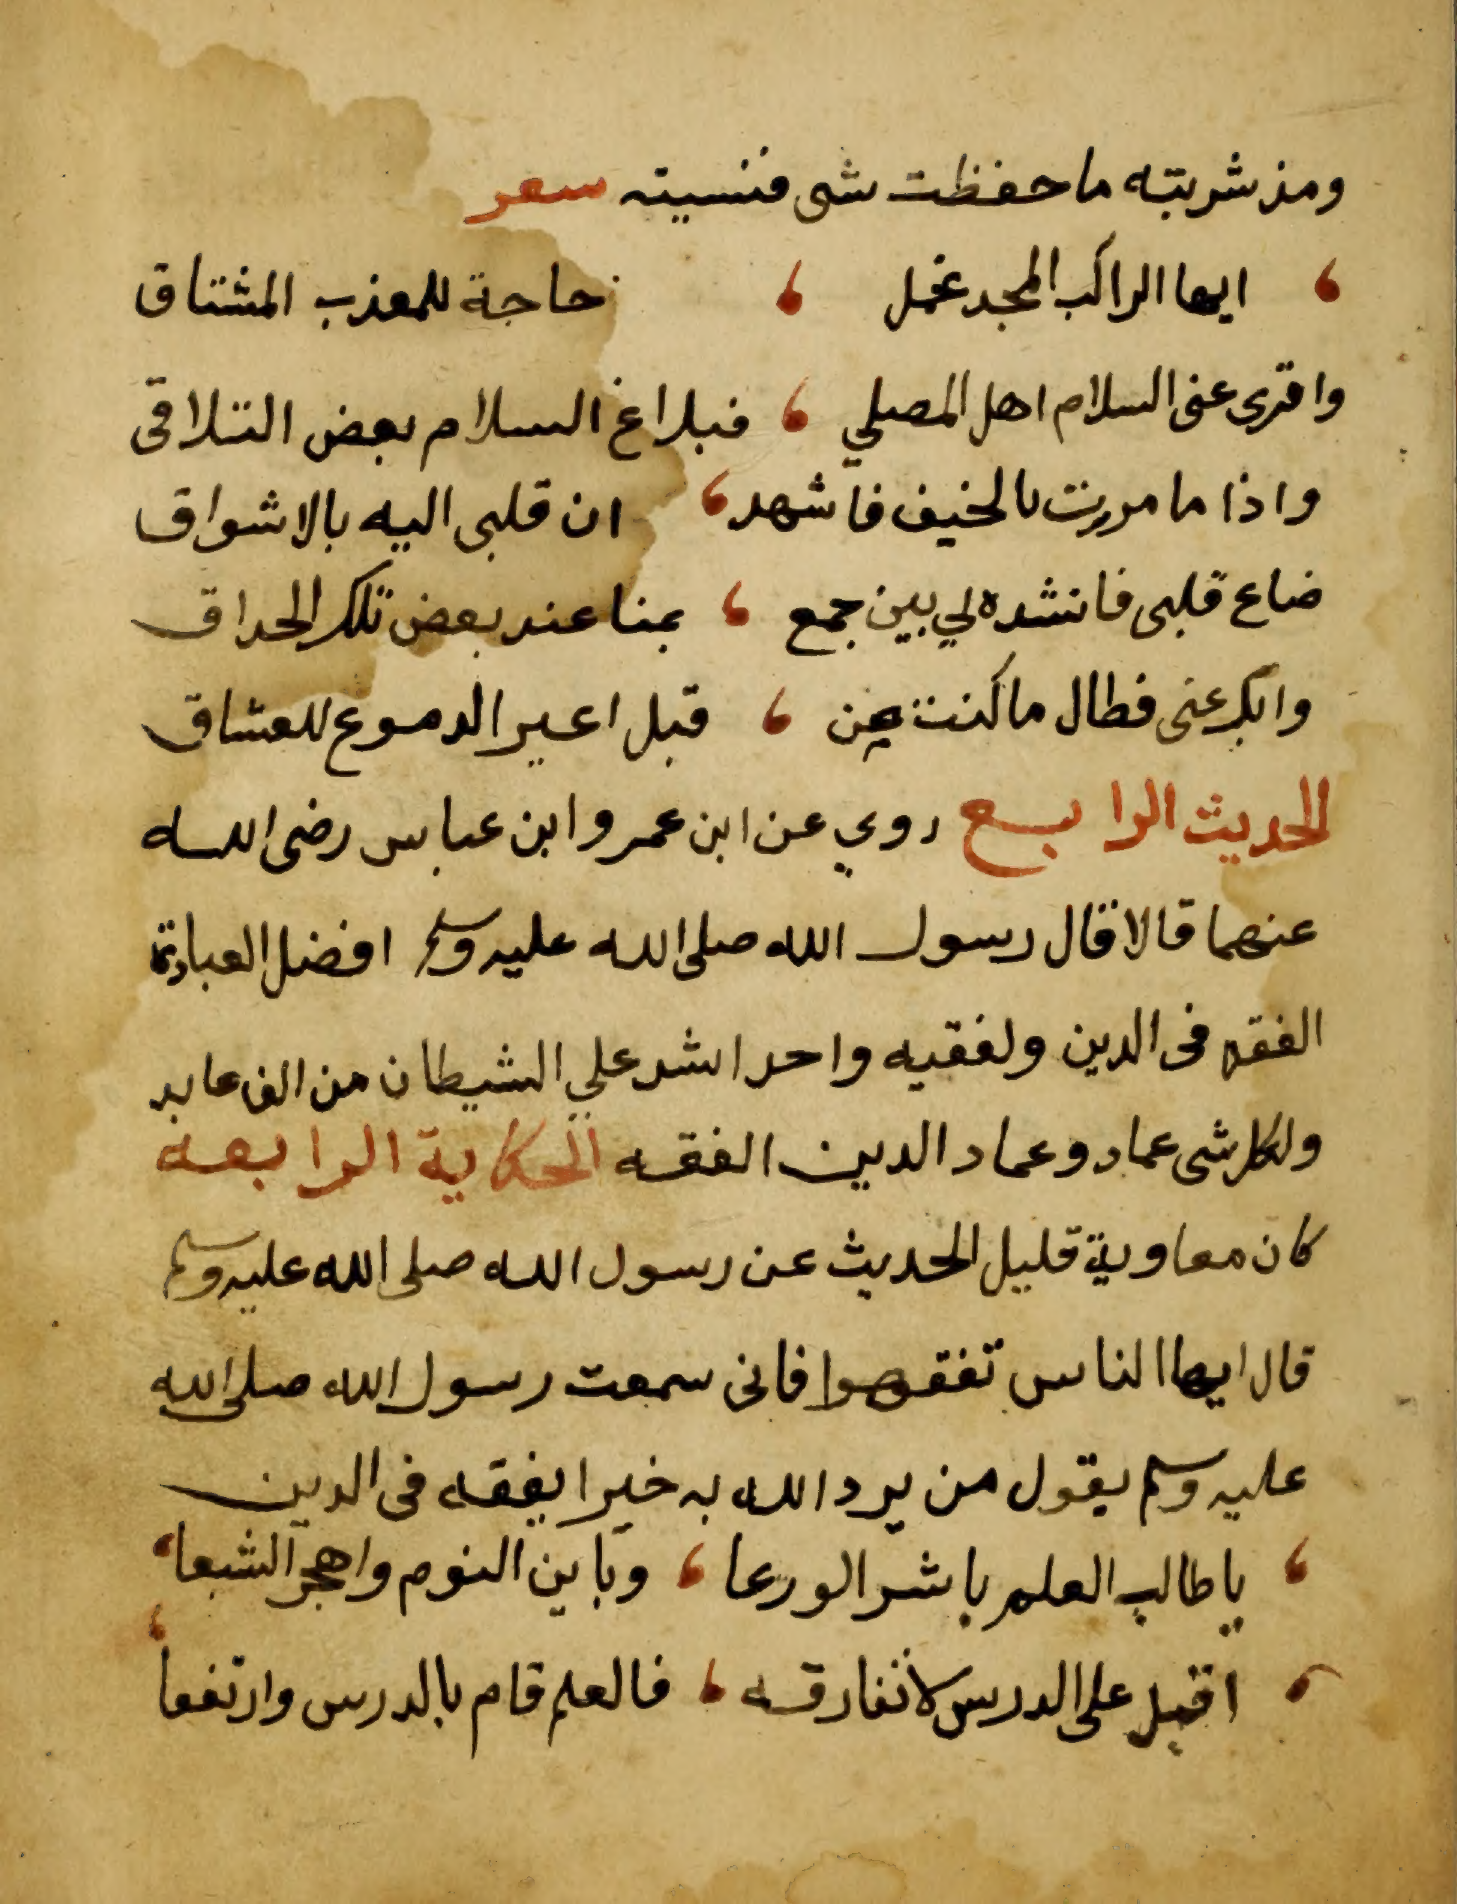 ومذ شربته ما حفظت شى فنسيته سعر
ايها الراكب المجد تحمل ، حاجة للمعذب المشتاق
واقرى عنى السلام اهل المصلي ، فبلاغ السلام بعض التلاقى
واذا ما مررت بالخيف فاشهد ، ان قلبى اليه بالاشواق
ضاع قلبى فانشده لي بين جمع ، بمنا عند بعض تلك الحداق
وابك عنى فطال ما كنت من ، قبل اعير الدموع للعشاق
الحديث الرابع روي عن ابن عمر وابن عباس رضى الله
عنهما قالا قال رسول الله صلى الله عليه وسلم افضل العبادة
الفقه فى الدين ولفقيه واحد اشد علي الشيطان من الف عابد
ولكل شى عماد وعماد الدين الفقه الحكاية الرابعه
كان معاوية قليل الحديث عن رسول الله صلى الله عليه وسلم
قال ايها الناس تفقهوا فانى سمعت رسول الله صلى الله
عليه وسلم يقول من يرد الله به خيرا يفقه فى الدين
، يا طالب العلم باشر الورعا ، وباين النوم واهجر الشبعا ،
، اقبل على الدرس لا تفارقه ، فالعلم قام بالدرس وارتفعا